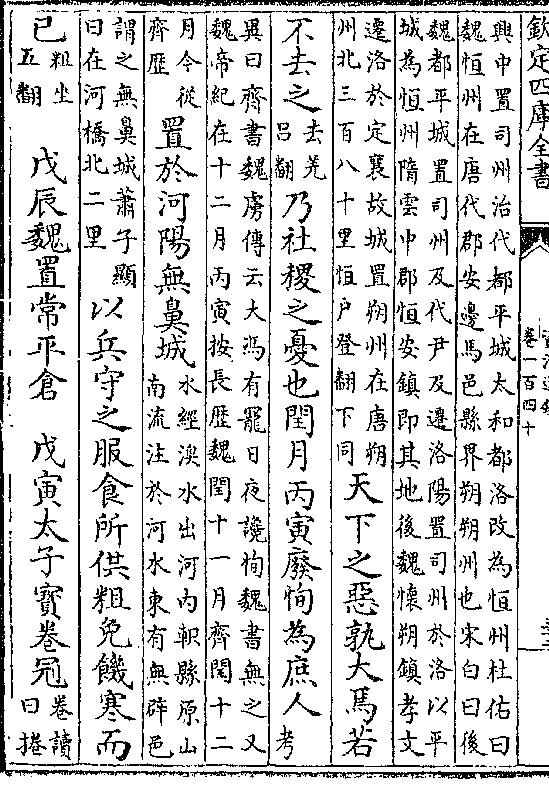 欽定四庫全書
卷一百四十
興中置司州治代都平城太和都洛改為恒州杜佑曰
魏恒州在唐代郡安邊馬邑縣界朔朔州也宋白曰後
魏都平城置司州及代尹及遷洛陽置司州於洛以平
城為恒州隋雲中郡恒安鎮即其地後魏懷朔鎮孝文
遷洛於定襄故城置朔州在唐朔
州北三百八十里恒户登翻下同
天下之惡孰大焉若
不去之去羌呂翻乃社稷之憂也閏月丙寅廢恂為庶人考
異曰齊書魏虜傳云大馮有寵日夜讒恂魏書無之又
魏帝紀在十二月丙寅按長歷魏閏十一月齊閏十二
月今從齊歷置於河陽無鼻城
水經湨水出河内軹縣原山
南流注於河水東有無辟邑
謂之無鼻城蕭子顯
曰在河橋北二里
以兵守之服食所供粗免饑寒而
已粗坐五翻 戊辰魏置常平倉 戊寅太子寶卷冠卷讀曰捲